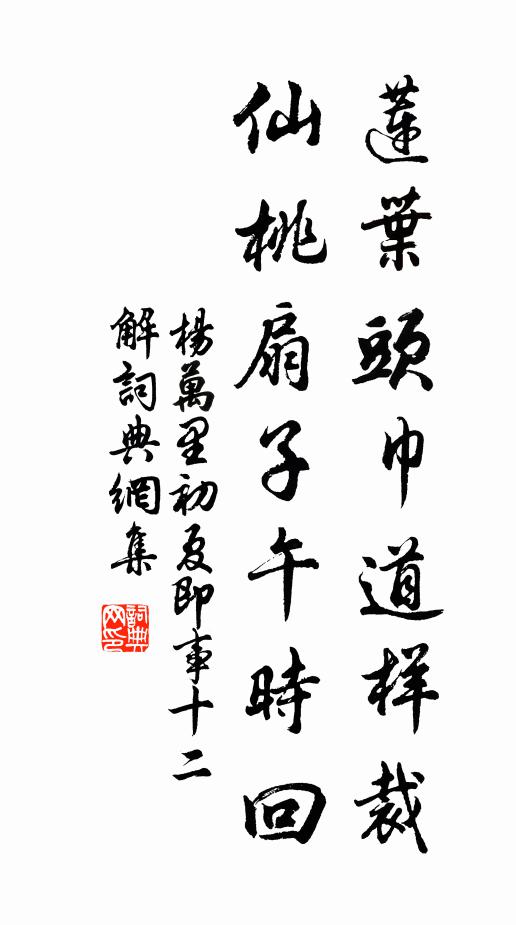 蓮葉頭巾道样裁
仙桃扇子午時回
楊萬里初夏即事十二
解詞典網集
詞典網印